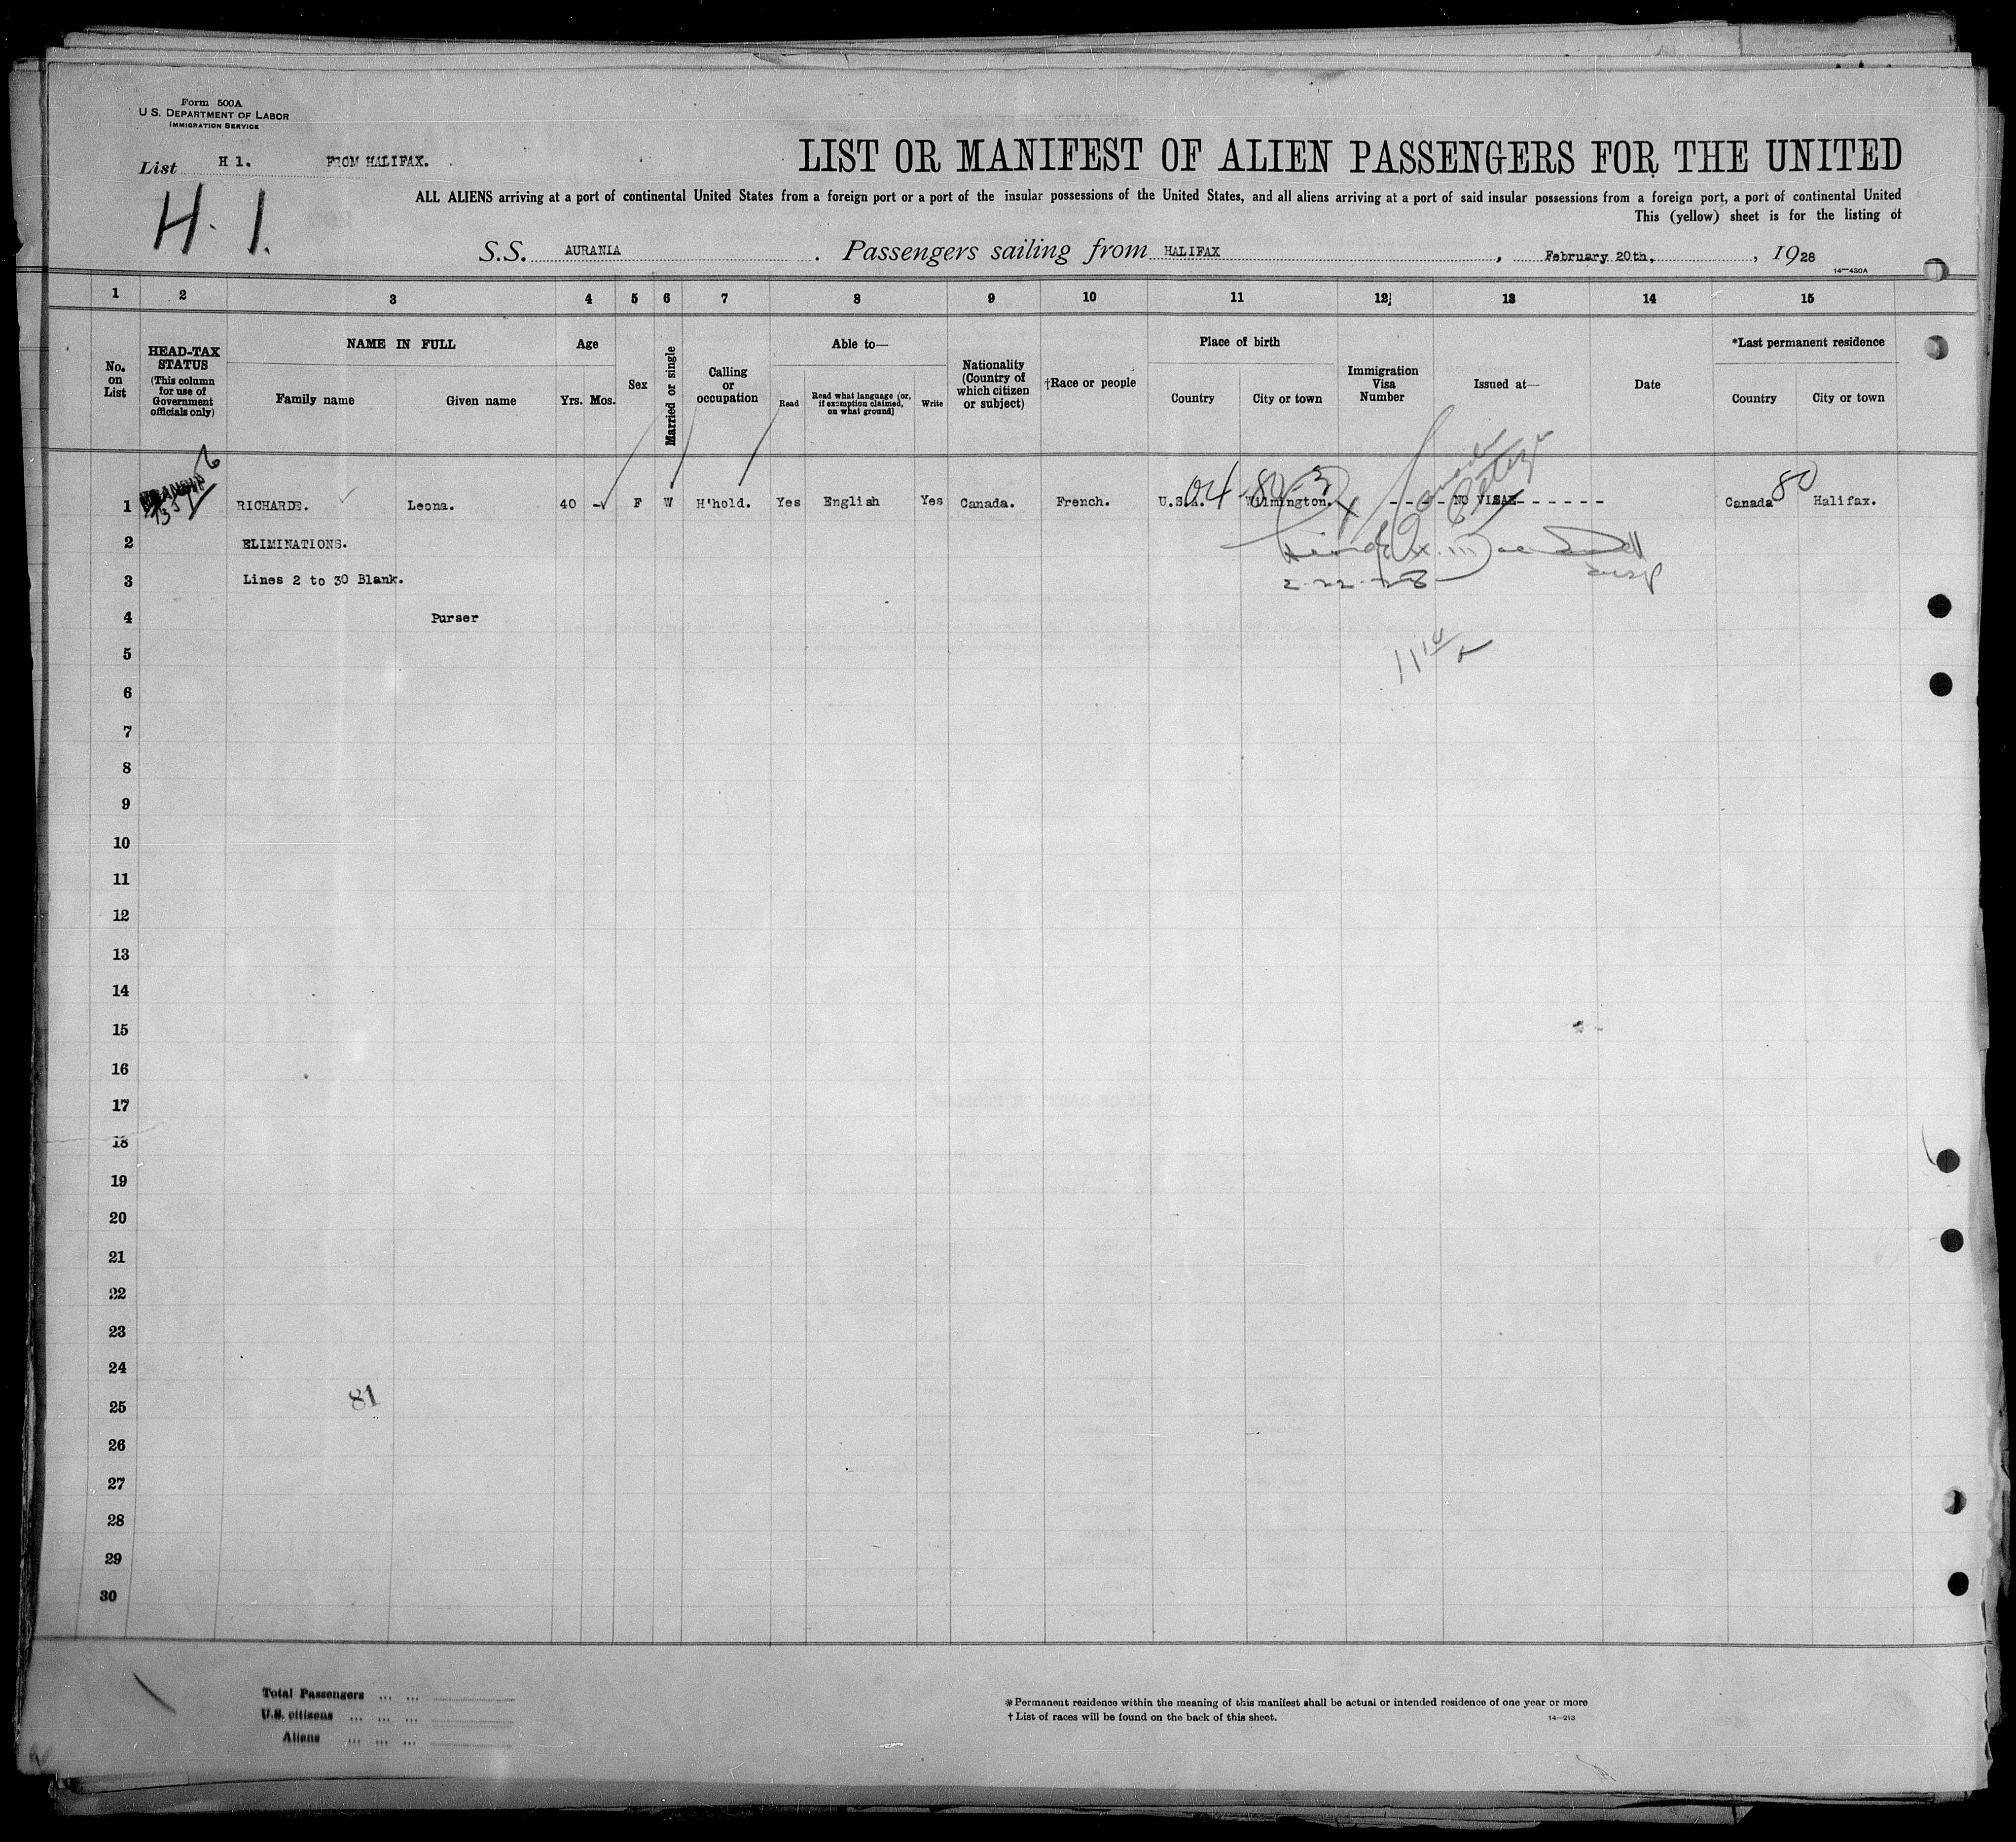 Form 500A
U. S. DEPARTMENT OF LABOR
IMMIGRATION SERVICE
List H 1. FROM HALIFAX.
H. 1.
LIST OR MANIFEST OF ALIEN PASSENGERS FOR THE UNITED
ALL ALIENS arriving at a port of continental United States from a foreign port or a port of the insular possessions of the United States, and all aliens arriving at a port of said insular possessions from a foreign port, a port of continental United
This (yellow) sheet is for the listing of
S.S. AURANIA . Passengers sailing from HALIFAX , February 20th, , 1928
14—430A
1 2 3 4 5 6 7 8 9 10 11 12 13 14 15
No. on List
HEAD-TAX STATUS (This column for use of Government officials only)
NAME IN FULL
Family name Given name
Age
Yrs. Mos.
Sex
Married or single
Calling or occupation
Able to—
Read Read what language (or, if exemption claimed, on what ground) Write
Nationality (Country of which citizen or subject)
†Race or people
Place of birth
Country City or town
Immigration Visa Number
Issued at—
Date
*Last permanent residence
Country City or town
1 RICHARDE. Leona. 40 - F W H'hold. Yes English Yes Canada. French. U.S.A. Wilmington. - - - - NO VISAE- - - - - - Canada 80 Halifax.
04-80-3
Canada
2 ELIMINATIONS.
3 Lines 2 to 30 Blank.
2-22-28
4 Purser
5
6
7
8
9
10
11
12
13
14
15
16
17
18
19
20
21
22
23
24
81
25
26
27
28
29
30
Total Passengers ... ...
U.S. citizens ... ... ...
Aliens ... ... ...
*Permanent residence within the meaning of this manifest shall be actual or intended residence of one year or more
† List of races will be found on the back of this sheet. 14—213